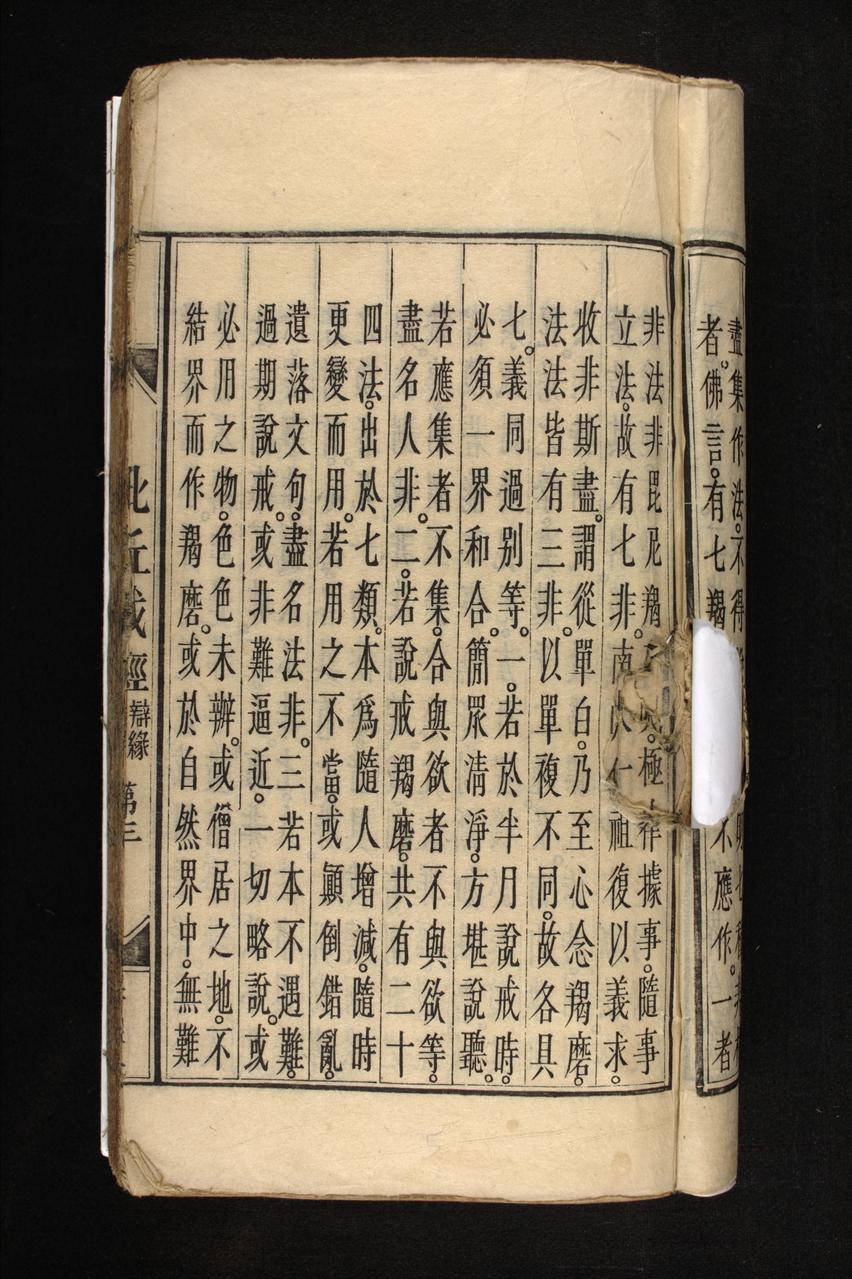 盡集作法。不得
者。佛言。有七羯 不應作。一者
非法非毘尼羯 極 據事。隨事
立法。故有七非。南 祖復以義求。
收非斯盡。謂從單白。乃至心念羯磨。
法法皆有三非。以單複不同。故各具
七。義同過別等。一。若於半月說戒時。
必須一界和合。簡眾清淨。方堪說聽。
若應集者不集。合與欲者不與欲等。
盡名人非。二。若說戒羯磨。共有二十
四法。出於七類。本為隨人增減。隨時
更變而用。若用之不當。或顛倒錯亂。
遺落文句。盡名法非。三若本不遇難。
過期說戒。或非難逼近。一切略說。或
必用之物。色色未辦。或僧居之地。不
結界而作羯磨。或於自然界中。無難
比丘戒經 辯緣 第三